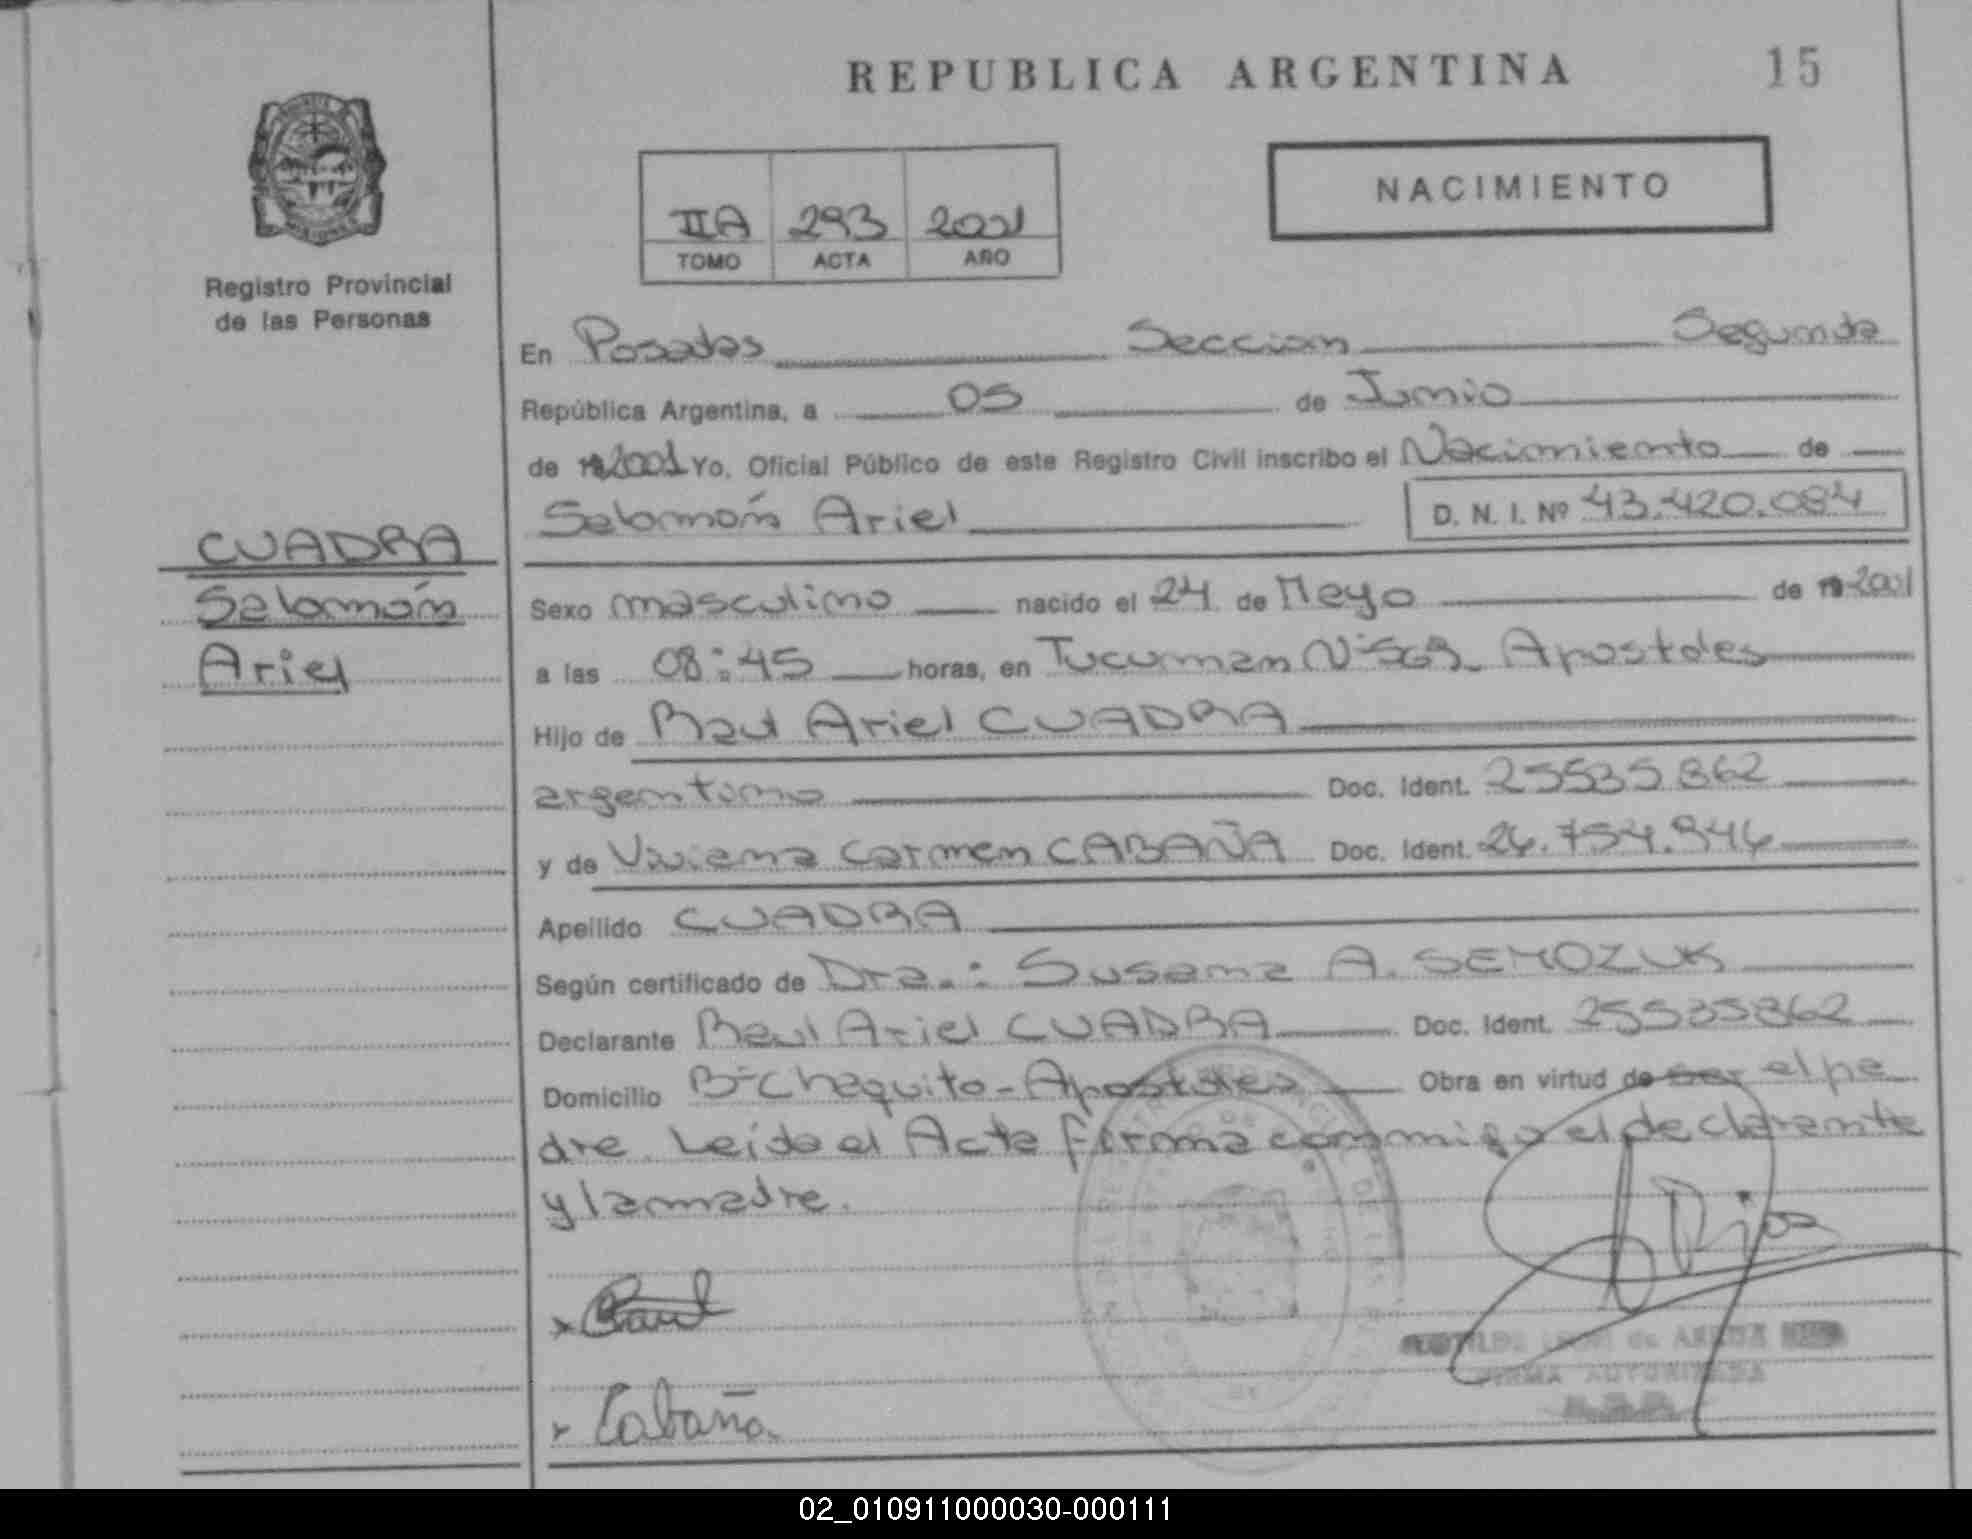 REPUBLICA ARGENTINA 15
NACIMIENTO
IIA 293 2001
TOMO ACTA AÑO
Registro Provincial
de las Personas
En Posadas Seccion Segunda
República Argentina, a 05 de Junio
de 2001 Yo, Oficial Público de este Registro Civil inscribo el Nacimiento de
Salomón Ariel D. N. I. Nº 43.420.084
CUADRA
Salomón
Ariel
Sexo masculino nacido el 24 de Mayo de 2001
a las 08:45 horas, en Tucuman Nº 569 Apostoles
Hijo de Raul Ariel CUADRA
argentino Doc. Ident. 25535862
y de Viviana Carmen CABAÑA Doc. Ident. 26.754.946
Apellido CUADRA
Según certificado de Dra.: Susana A. SEMOZUK
Declarante Raul Ariel CUADRA Doc. Ident. 25535862
Domicilio Bº Chaquito - Apostoles Obra en virtud de ser el pa
dre. Leida el Acta firma conmigo el declarante
y la madre.
Raul
Rios
FIRMA AUTORIZADA
Cabaña
02_010911000030-000111